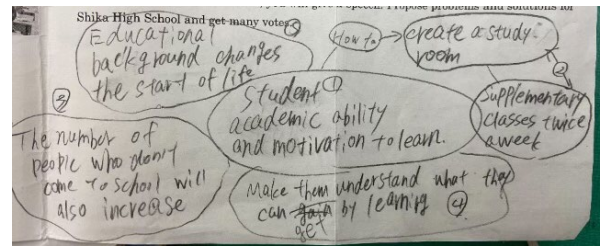 you will give a speech. Propose problems and solutions for
Shika High School and get many votes
⑤
Educational
background changes
the start of life
How to
create a study
room
②
Supplementary
classes twice
a week
Student ①
academic ability
and motivation to learn.
③
The number of
people who don't
come to school will
also increase
Make them understand what they
can gain by learning ④
get